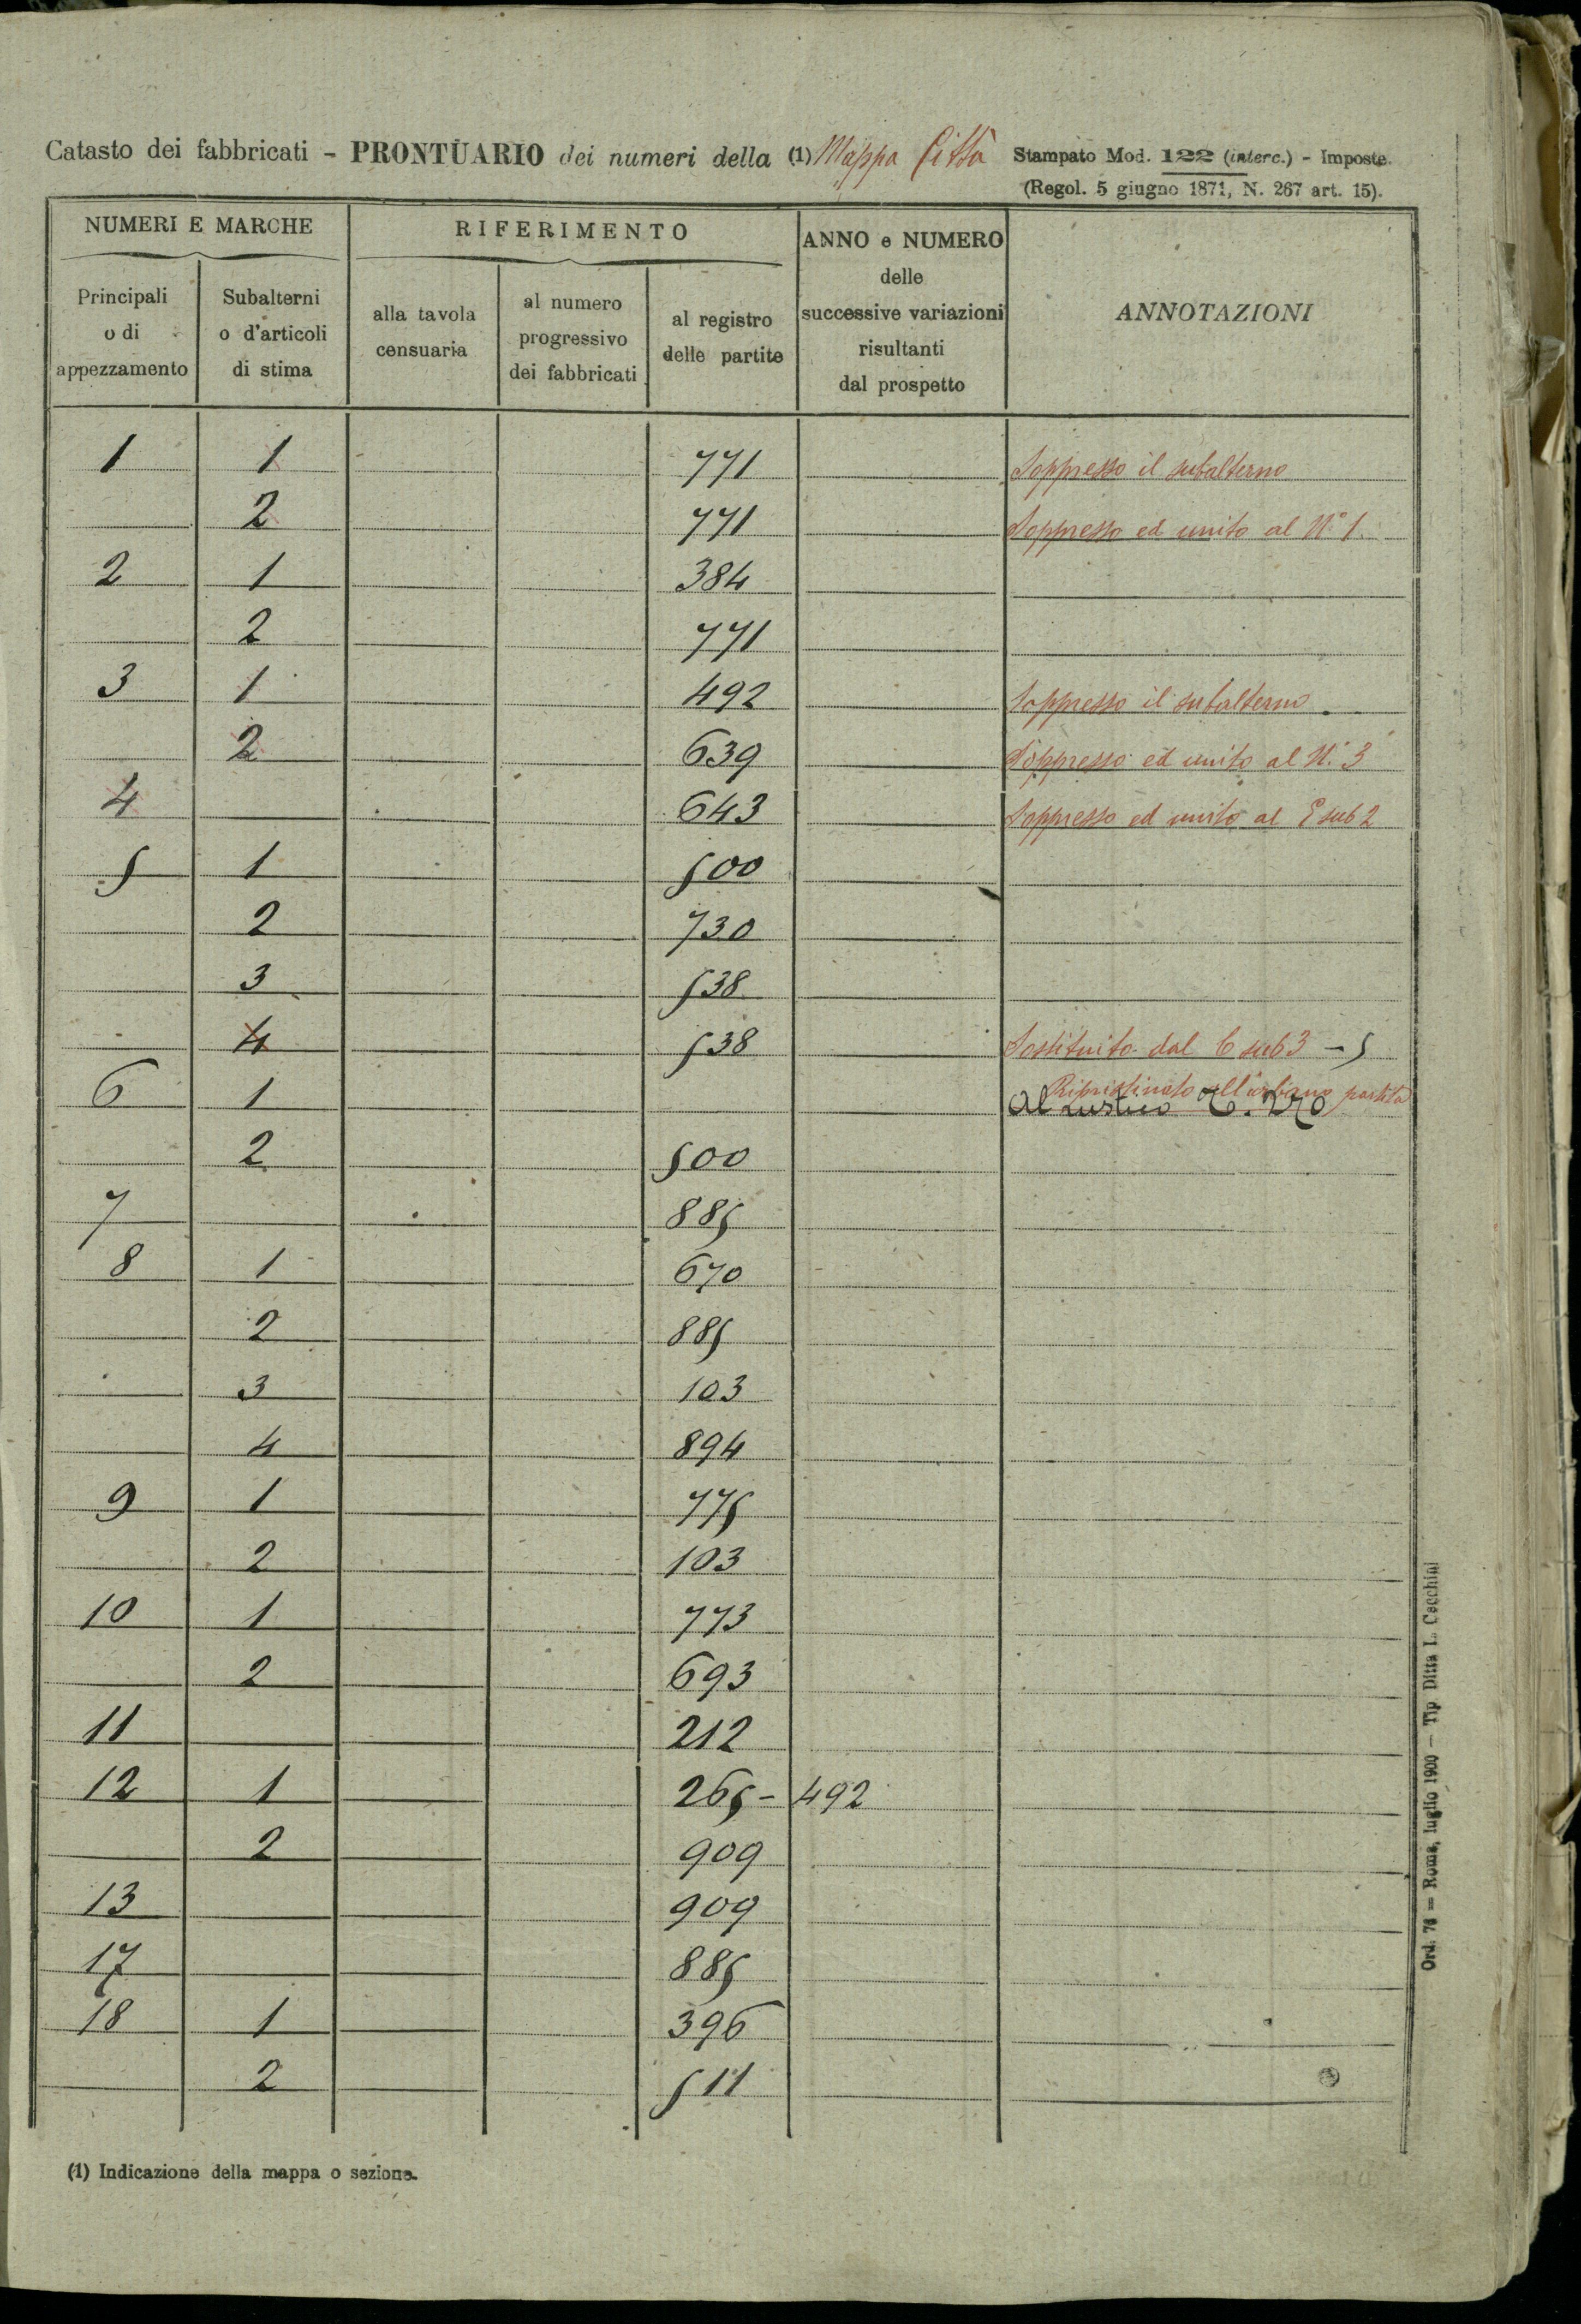 Catasto dei fabbricati - PRONTUARIO dei numeri della (1) Mappa Città
Stampato Mod. 122 (interc.) - Imposte.
(Regol. 5 giugno 1871, N. 267 art. 15).
NUMERI E MARCHE
RIFERIMENTO
ANNO e NUMERO
delle
successive variazioni
risultanti
dal prospetto
ANNOTAZIONI
Principali
o di
appezzamento
Subalterni
o d'articoli
di stima
alla tavola
censuaria
al numero
progressivo
dei fabbricati
al registro
delle partite
1 1 771 Soppresso il subalterno
2 771 Soppresso ed unito al N.° 1.
2 1 384
2 771
3 1 492 Soppresso il subalterno
2 639 Soppresso ed unito al N.° 3
4 643 Soppresso ed unito al 5 sub 2
5 1 500
2 730
3 538
4 538 Sostituito dal 6 sub 3 - 5
Ripristinato all'urbano partita
6 1 Al rustico
2 500
7 885
8 1 670
2 885
3 103
4 894
9 1 775
2 103
10 1 773
2 693
11 212
12 1 265 - 492
2 909
13 909
17 885
18 1 396
2 511
(1) Indicazione della mappa o sezione.
Ord. 78 = Roma, luglio 1900 — Tip Ditta L. Cecchini